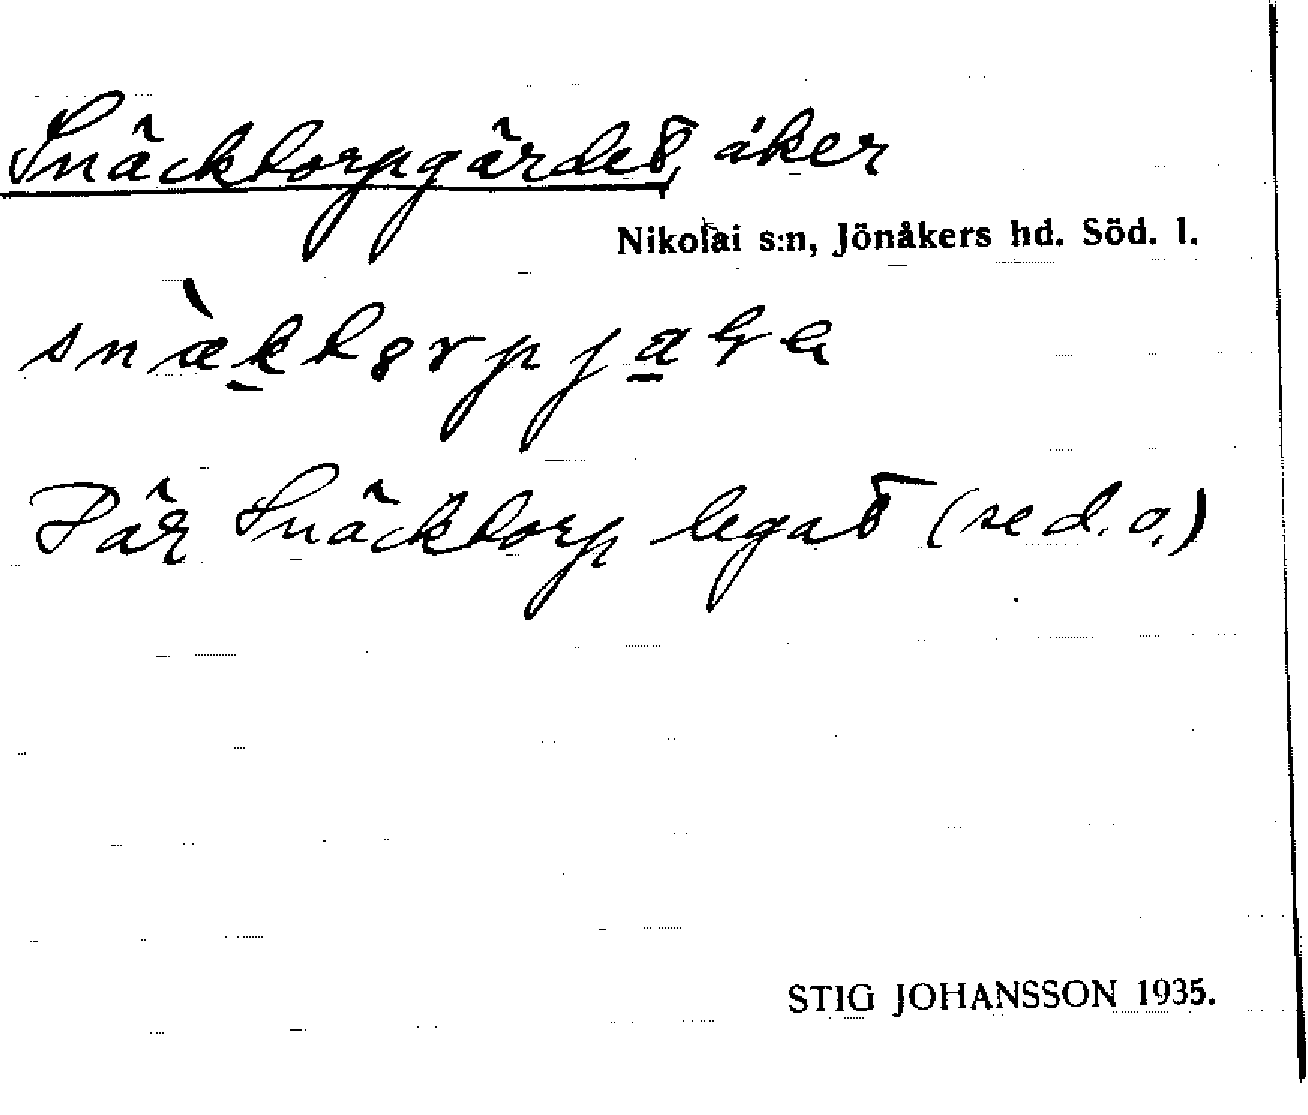 Snäcktorpgärdet, åker
Nikolai s:n, Jönåkers hd. Söd. l.
Där Snäcktorp legat (se d.o.)
STIG JOHANSSON 1935.